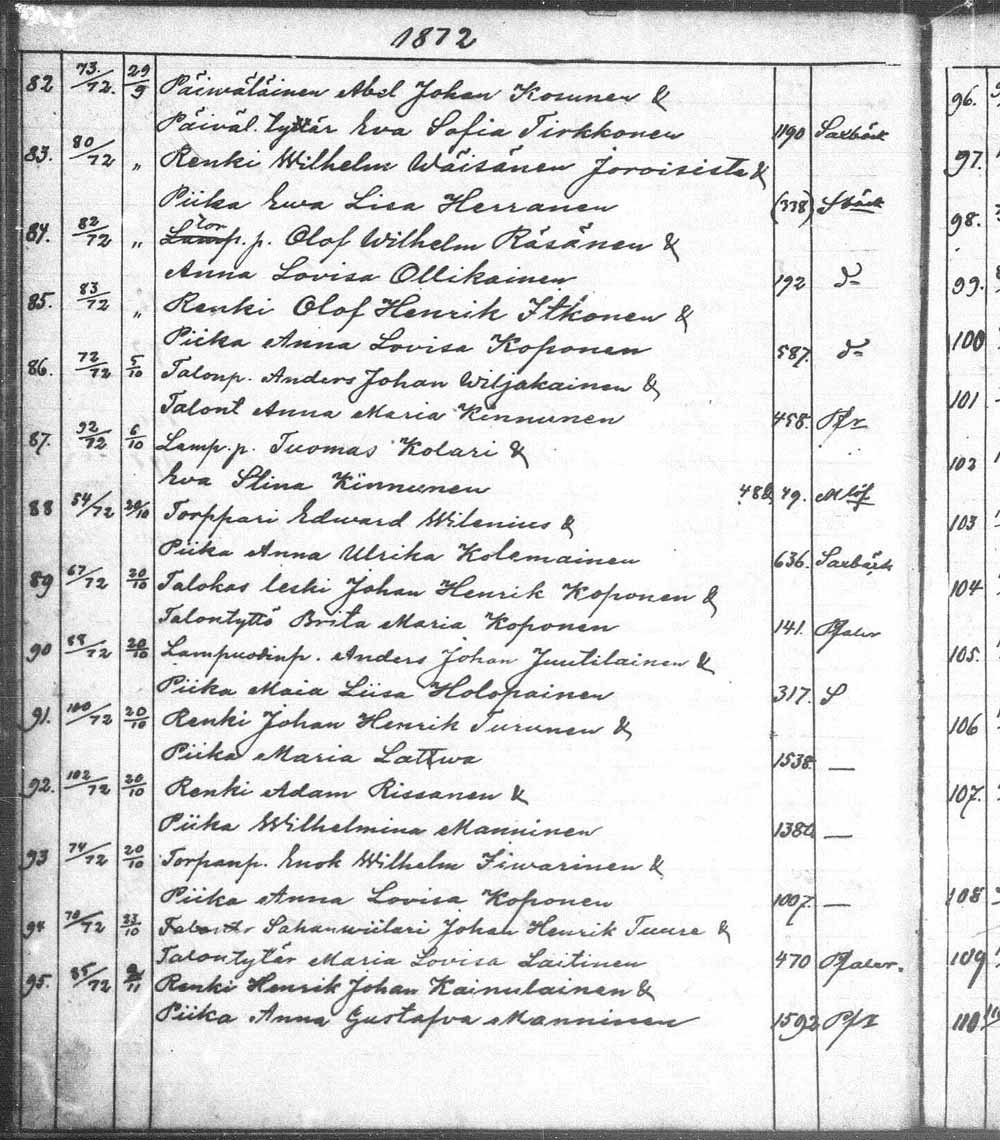 1872
82 73./72. 29/9 Päiwäläinen Abel Johan Kosunen &
Päiväl. tytär Eva Sofia Tirkkonen 1190 Saxbäck
83. 80/72 „ Renki Wilhelm Wäisänen Joroisista &
Piika Ewa Lisa Herranen (338) Sbäck
84. 82/72 „ Lamp. p. Olof Wilhelm Räsänen &
Anna Lovisa Ollikainen 192 d-
85. 83/72 „ Renki Olof Henrik Itkonen &
Piika Anna Lovisa Koponen 587. d-
86. 72/72 5/10 Talonp. Anders Johan Wiljakainen &
Talont Anna Maria Kinnunen 458. Pfr
87. 92/72 6/10 Lamp. p. Tuomas Kolari &
Eva Stina Kinnunen 79. Mlöf
88 54/72 20/10 Torppari Edward Wilenius &
Piika Anna Ulrika Kolemainen 636. Saxbäck
89 67/72 20/10 Talokas leski Johan Henrik Koponen &
Talontyttö Brita Maria Koponen 141. Pfaler
90 88/72 20/10 Lampuodinp. Anders Johan Juutilainen &
Piika Maia Liisa Holopainen 317. S
91. 100/72 20/10 Renki Johan Henrik Turunen &
Piika Maria Lattwa 1538. —
92. 102/72 20/10 Renki Adam Rissanen &
Piika Wilhelmina Manninen 138 —
93 74/72 20/10 Torpanp. Enok Wilhelm Iiwarinen &
Piika Anna Lovisa Koponen 1007. —
94 70/72 23/10 Sahanwiilari Johan Henrik Tuure &
Talontytär Maria Lovisa Laitinen 470 Pfaler.
95. 85/72 Renki Henrik Johan Kainulainen &
Piika Anna Gustafva Manninen 1592 Pfr
96.
97.
98.
99.
100
101
102
103
104
105.
106
107.
108
109
110